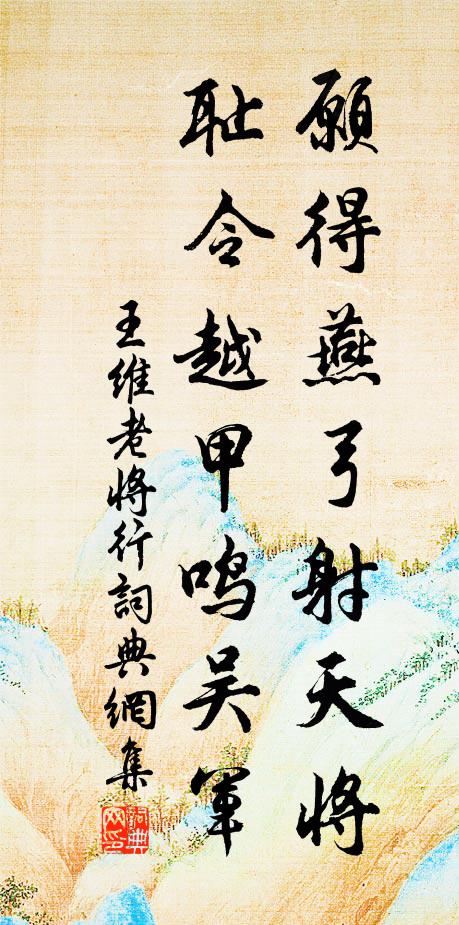 願得燕弓射天將
耻令越甲鳴吴軍
王維老將行詞典網集
詞典网印